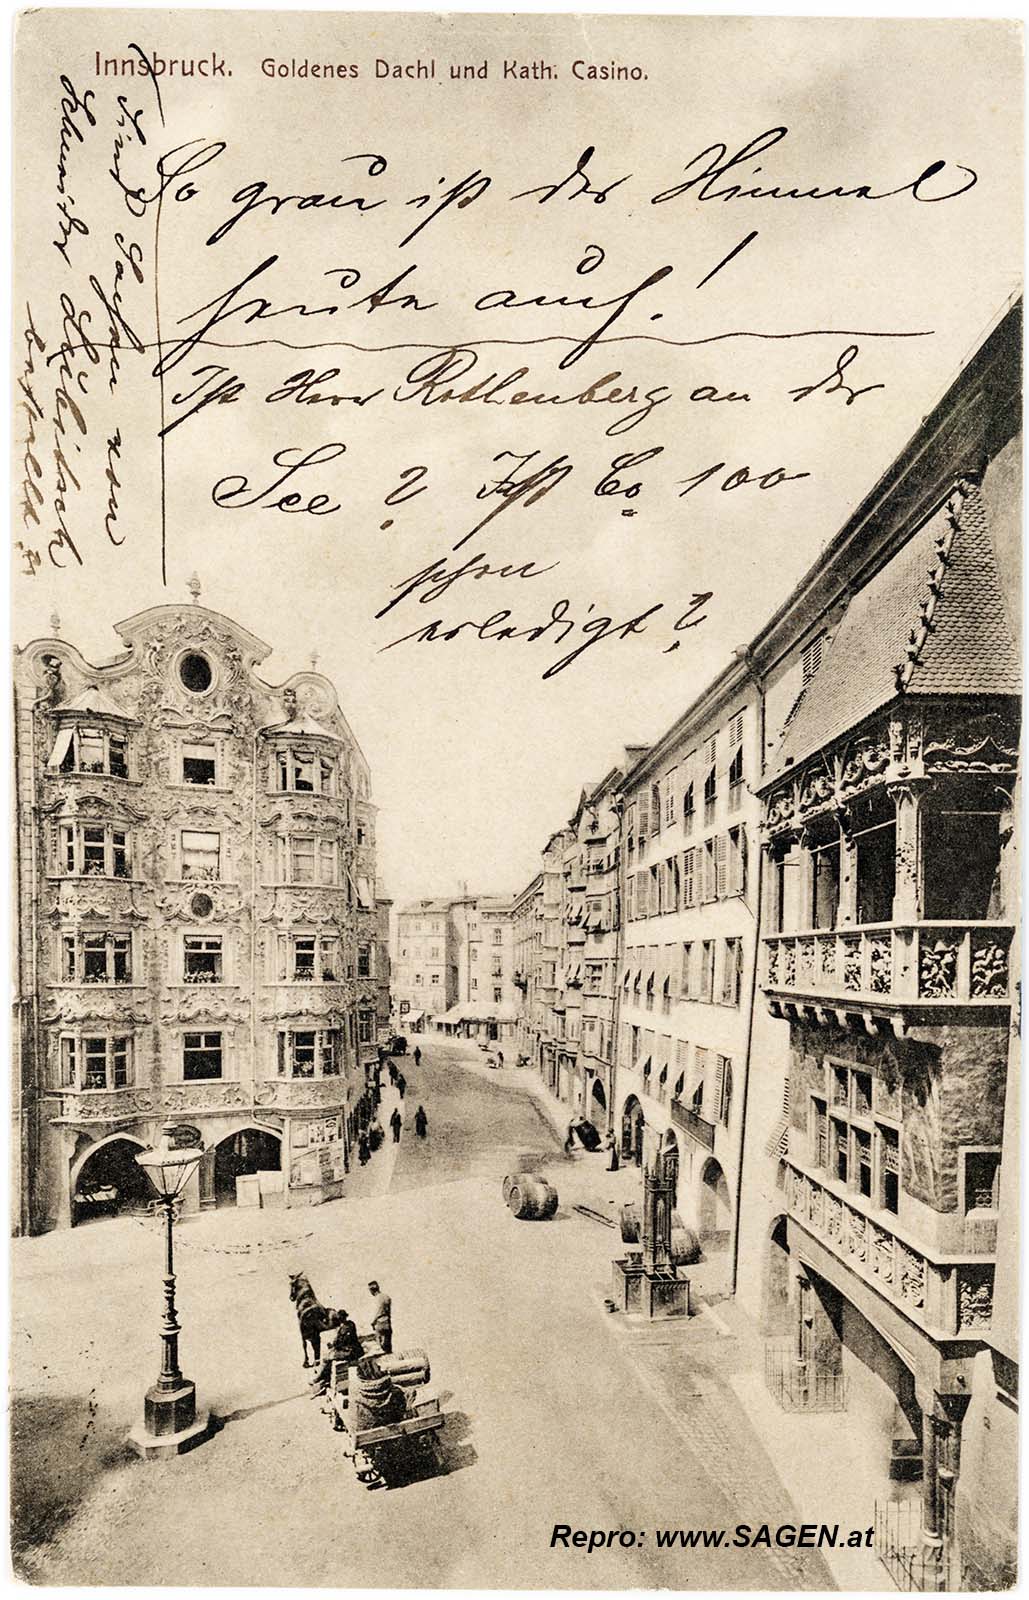 Innsbruck. Goldenes Dachl und Kath. Casino.
So grau ist der Himmel
heute auch!
Ist Herr Rothenberg an der
See? Ist Co 100
schon
erledigt?
Sind Sachen von
Schneider
bestellt?
Repro: www.SAGEN.at